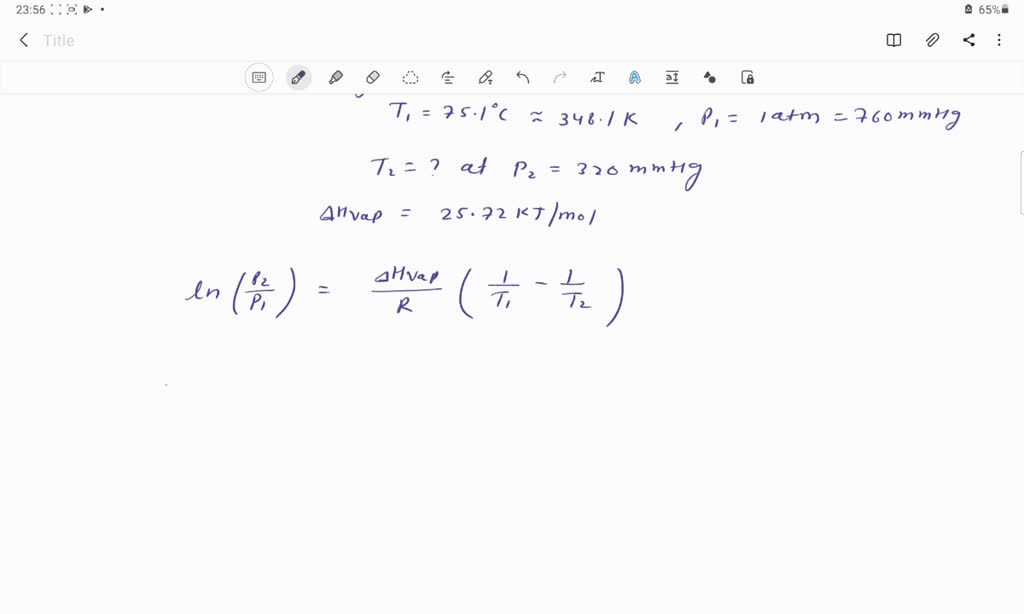 23:56 65%
Title
T₁ = 75.1°C ≈ 348.1 K , P₁ = 1 atm = 760 mmHg
T₂ = ? at P₂ = 320 mmHg
ΔHvap = 25.72 KJ/mol
ln (P₂/P₁) = ΔHvap/R (1/T₁ - 1/T₂)